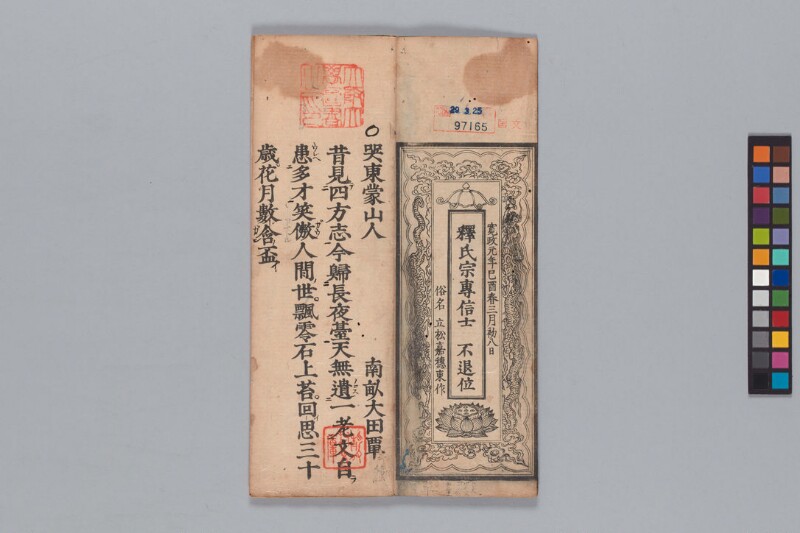 29.3.25
97165
寛政元年己酉春三月初八日
釋氏宗專信士 不退位
俗名 立松嘉穗東作
哭東蒙山人 南畝大田覃
昔見四方志今歸長夜臺天無遺一老文自
患多才笑傲人間世飄零石上苔回思三十
歲花月數含盃